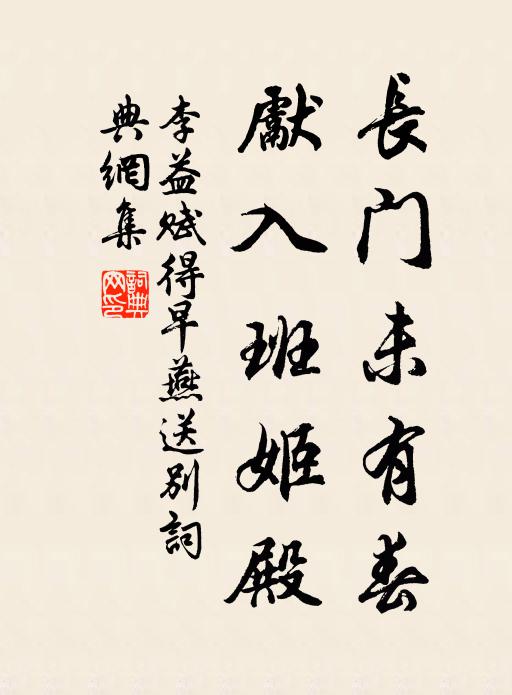 長门未有春
獻入班姬殿
李益赋得早燕送别詞
典網集
詞典网印